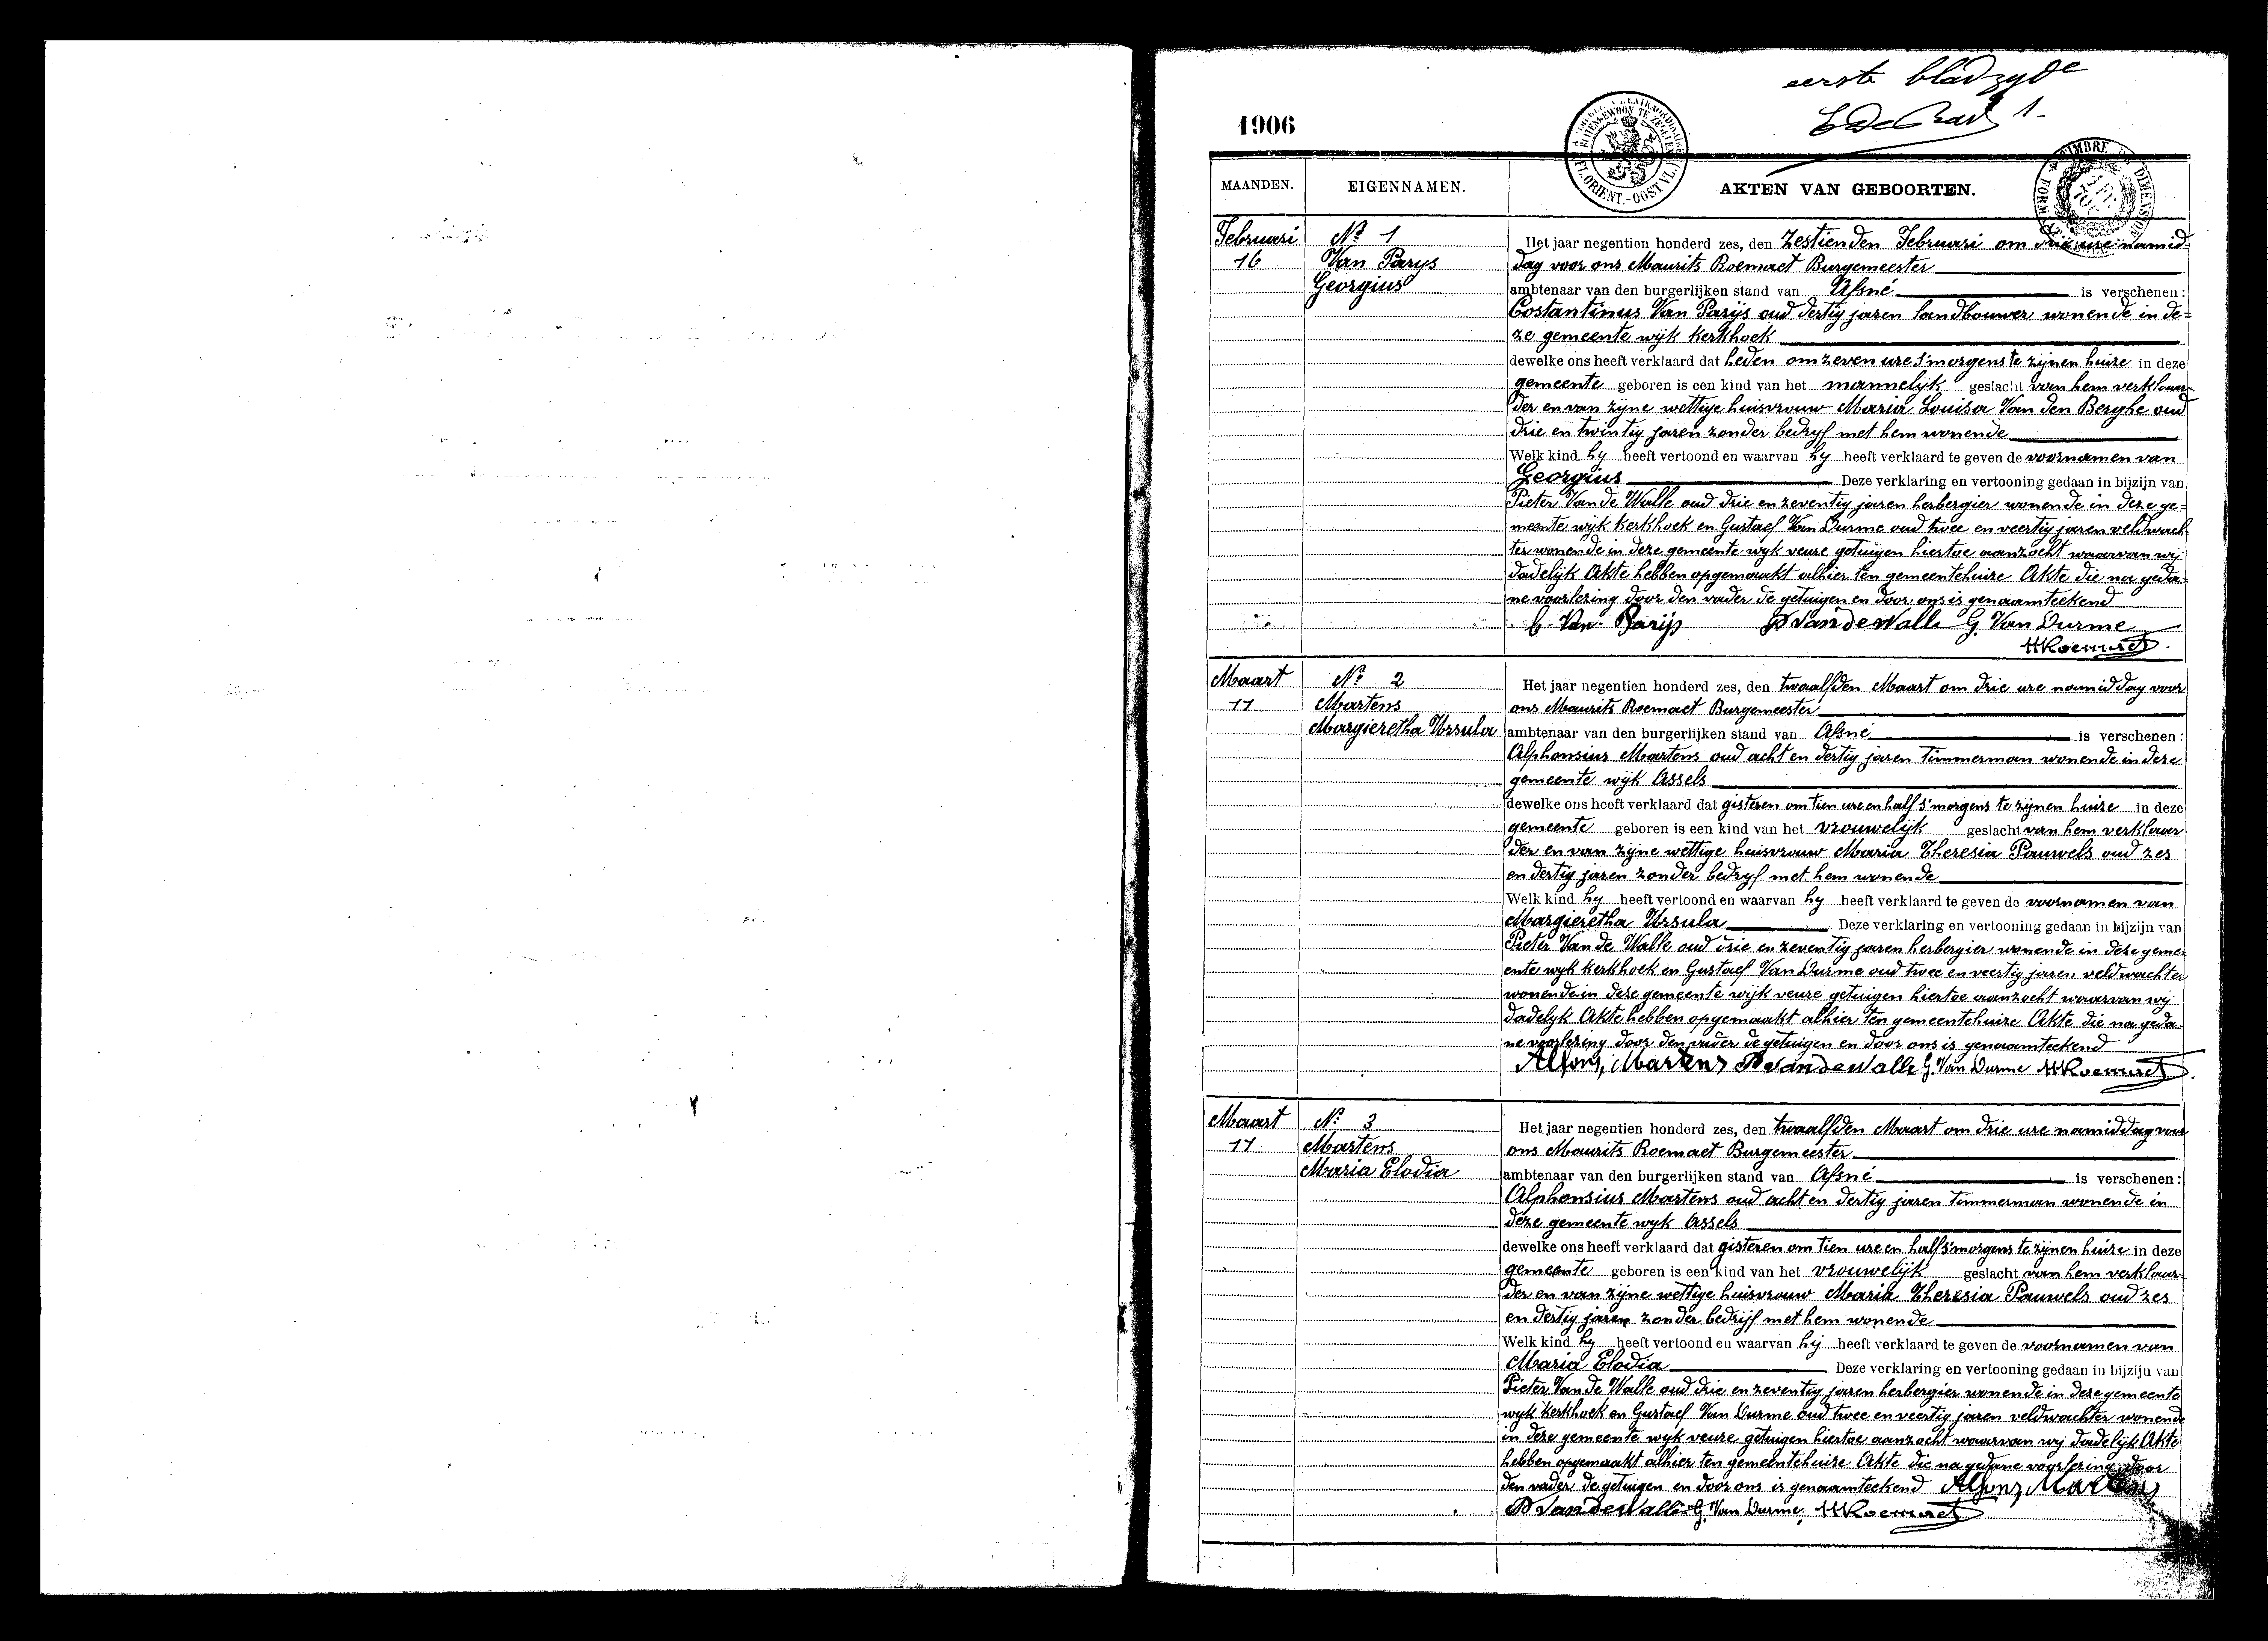 eerste bladzyde
1.
1906
MAANDEN. EIGENNAMEN. AKTEN VAN GEBOORTEN.
FL. ORIENT.-OOST VL.
TIMBRE DIMENSION
Februari Nº 1 Het jaar negentien honderd zes, den zestienden Februari om drie ure namid-
16 Van Parys dag voor ons Maurits Roemaet Burgemeester
Georgius ambtenaar van den burgerlijken stand van Afsné is verschenen:
Costantinus Van Parijs oud dertig jaren landbouwer wonende in de-
ze gemeente wijk kerkhoek
dewelke ons heeft verklaard dat heden om zeven ure s'morgens te zijnen huize in deze
gemeente geboren is een kind van het mannelijk geslacht van hem verklaar-
der en van zijne wettige huisvrouw Maria Louisa Van den Berghe oud
drie en twintig jaren zonder bedryf met hem wonende
Welk kind hy heeft vertoond en waarvan hy heeft verklaard te geven de voornamen van
Georgius Deze verklaring en vertooning gedaan in bijzijn van
Pieter Van de Walle oud drie en zeventig jaren herbergier wonende in deze ge-
meente wijk kerkhoek en Gustaef Van Durme oud twee en veertig jaren veldwach-
ter wonende in deze gemeente wyk veure getuigen hiertoe aanzocht waarvan wij
dadelijk Akte hebben opgemaakt alhier ten gemeentehuize Akte die na geda-
ne voorlezing door den vader de getuigen en door ons is genaamteekend
C. Van Parijs P Van de Walle G. Van Durme
MRoemaet
Maart Nº 2 Het jaar negentien honderd zes, den twaalfden Maart om drie ure namiddag voor
11 Martens ons Maurits Roemaet Burgemeester
Margieretha Ursula ambtenaar van den burgerlijken stand van Afsné is verschenen:
Alphonsius Martens oud acht en dertig jaren timmerman wonende in deze
gemeente wijk Assels
dewelke ons heeft verklaard dat gisteren om tien ure en half s'morgens te zijnen huize in deze
gemeente geboren is een kind van het vrouwelijk geslacht van hem verklaar
der en van zijne wettige huisvrouw Maria Theresia Pauwels oud zes
en dertig jaren zonder bedryf met hem wonende
Welk kind hy heeft vertoond en waarvan hy heeft verklaard te geven de voornamen van
Margieretha Ursula Deze verklaring en vertooning gedaan in bijzijn van
Pieter Van de Walle oud drie en zeventig jaren herbergier wonende in deze geme-
ente wyk kerkhoek en Gustaef Van Durme oud twee en veertig jaren veldwachter
wonende in deze gemeente wijk veure getuigen hiertoe aanzocht waarvan wy
dadelyk Akte hebben opgemaakt alhier ten gemeentehuize Akte die na geda-
ne voorlezing door den vader de getuigen en door ons is genaamteekend
Alfons, Martens P Van de Walle G. Van Durme MRoemaet
Maart Nº 3 Het jaar negentien honderd zes, den twaalfden Maart om drie ure namiddag voor
11 Martens ons Maurits Roemaet Burgemeester
Maria Elodia ambtenaar van den burgerlijken stand van Afsné is verschenen:
Alphonsius Martens oud acht en dertig jaren timmerman wonende in
deze gemeente wyk Assels
dewelke ons heeft verklaard dat gisteren om tien ure en half s'morgens te zijnen huize in deze
gemeente geboren is een kind van het vrouwelijk geslacht van hem verklaar-
der en van zijne wettige huisvrouw Maria Theresia Pauwels oud zes
en dertig jaren zonder bedrijf met hem wonende
Welk kind hy heeft vertoond en waarvan hij heeft verklaard te geven de voornamen van
Maria Elodia Deze verklaring en vertooning gedaan in bijzijn van
Pieter Van de Walle oud drie en zeventig jaren herbergier wonende in deze gemeente
wyk kerkhoek en Gustaef Van Durme oud twee en veertig jaren veldwachter wonende
in deze gemeente wyk veure getuigen hiertoe aanzocht waarvan wij dadelijk Akte
hebben opgemaakt alhier ten gemeentehuize Akte die na gedane voorlezing door
den vader de getuigen en door ons is genaamteekend Alfons, Martens
P Van de Walle G. Van Durme, MRoemaet